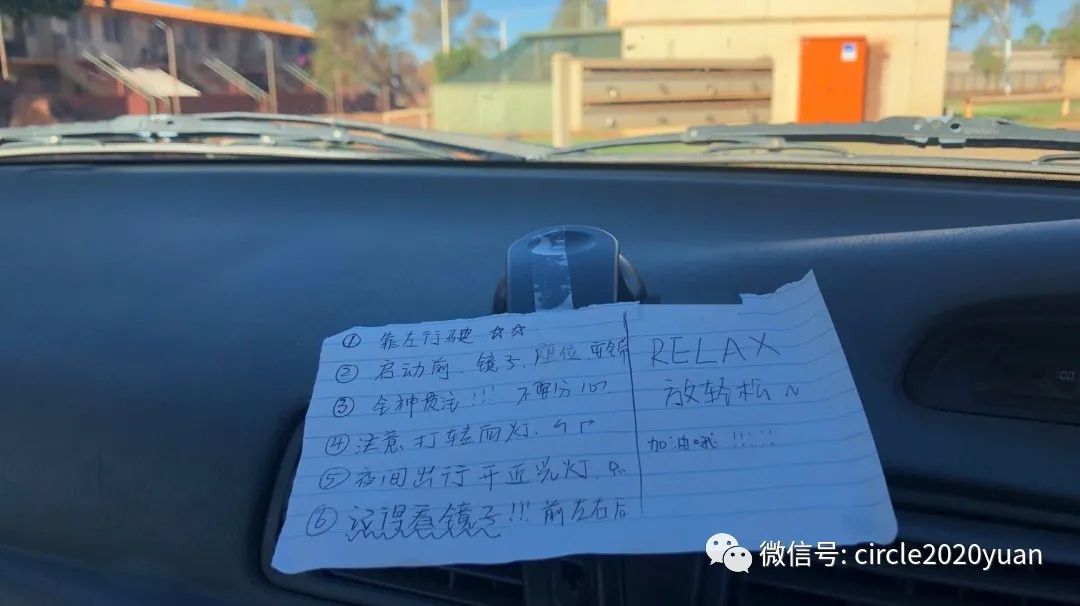 ① 靠左行驶 ☆☆
② 启动前 镜子、座位、
③ 全神贯注!!! 不要分心.
④ 注意打转向灯. ↰ ↱
⑤ 夜间出行开近光灯.
⑥ 记得看镜子!!! 前左右后
RELAX
放轻松~
加油哦!!!!!
微信号: circle2020yuan